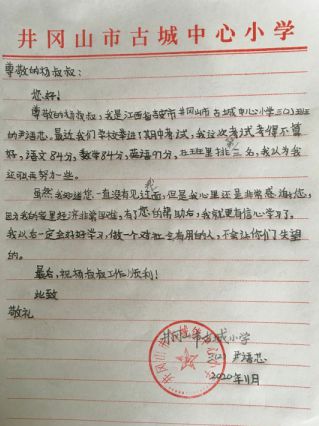 井冈山市古城中心小学
尊敬的杨叔叔:
您好!
尊敬的杨叔叔,我是江西省吉安市井冈山市古城中心小学三(2)班班
的尹潘芯。最近我们学校举进了期中考试,我这次考试考得不算
好,语文84分,数学84分,英语97分,在班里排第三名,我以为我
还可以再努力一些。
虽然我和您一直没有见过面,但是我心里还是非常感谢您,
因为我的家里经济非常困难,有了您的帮助后,我就更有信心学习了。
我以后一定会好好学习,做一个对社会有用的人,不会让你们失望
的。
最后,祝杨叔叔工作顺利!
此致
敬礼
井冈山市古城小学
尹潘芯
2020年11月